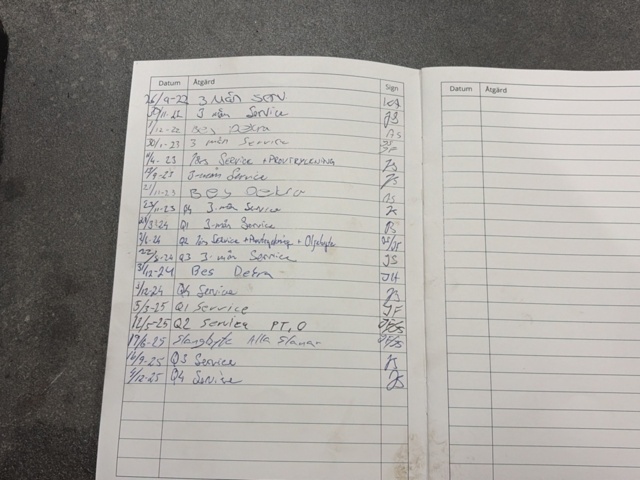 Datum Åtgärd Sign
26/9-22 3 MÅN SERV
3 mån Service JS
1/12-22 Bes Dekra JS
30/1-23 3 mån Service
Service + PROVTRYCKNING JS
3-mån Service JS
21/11-23 Bes Dekra JS
23/11-23 Q4 3-mån Service JS
Q1 3-mån Service JS
Q2 Service + Provtryckning + Oljebyte JS/JF
Q3 3-mån Service JS
3/12-24 Bes Dekra JH
4/12-24 Q4 Service JS
5/3-25 Q1 Service JF
12/5-25 Q2 Service PT, O
17/6-25 Slangbyte Alla Slangar
16/9-25 Q3 Service JS
4/12-25 Q4 Service JS
Datum Åtgärd